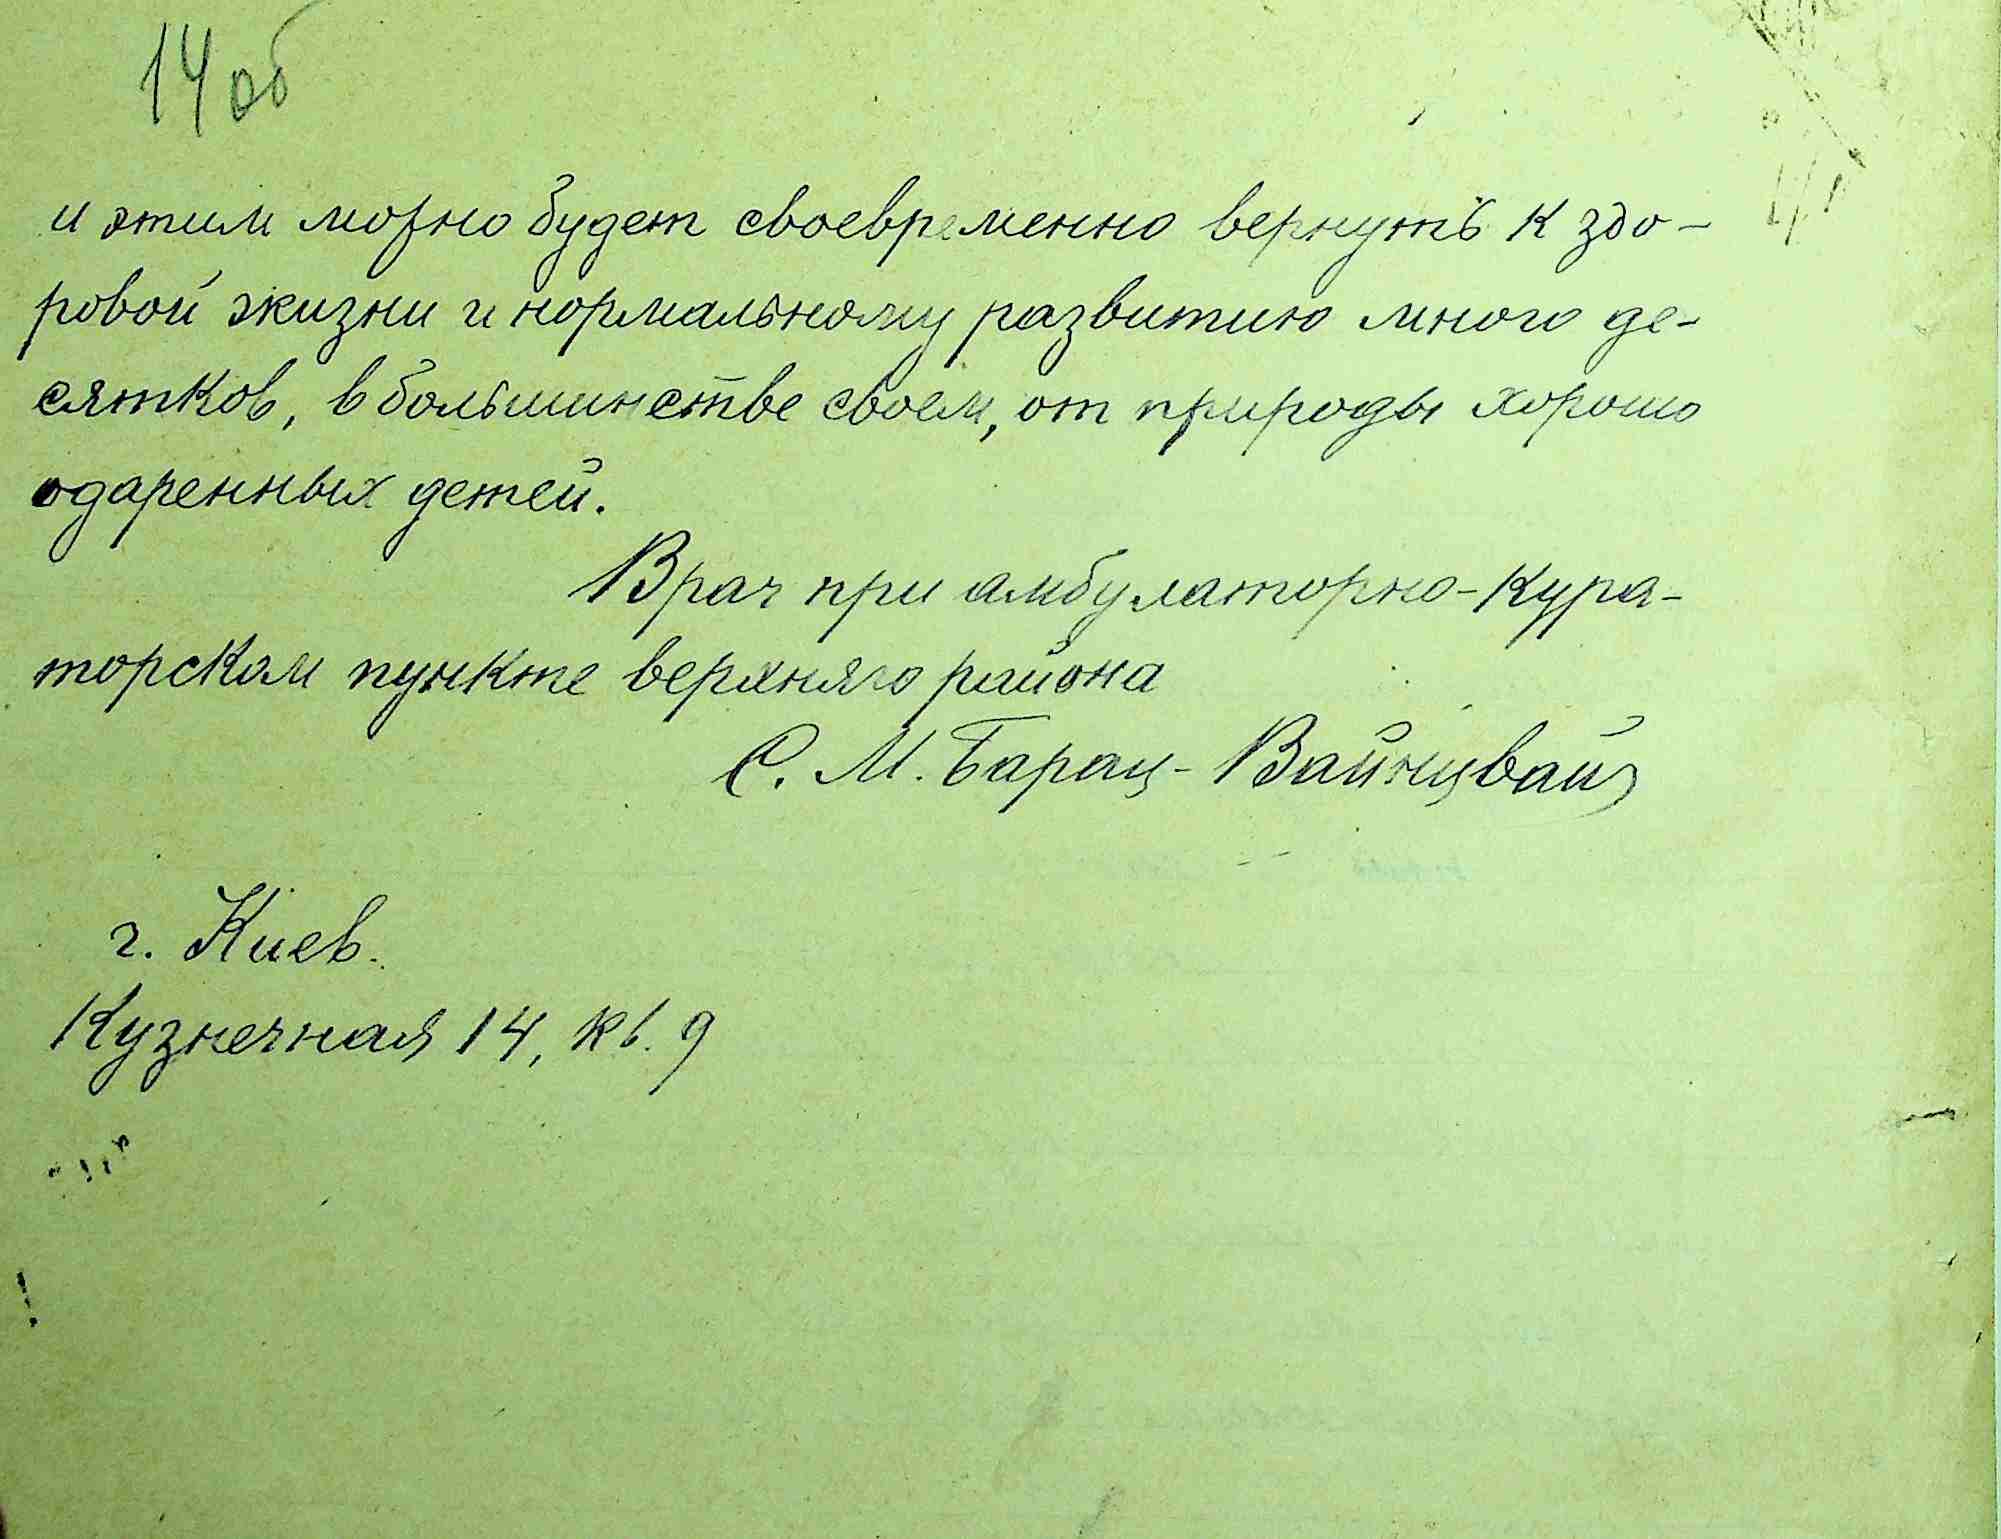 14 об
и этим можно будет своевременно вернуть к здо-
ровой жизни и нормальному развитию много де-
сятков, в большинстве своем, от природы хорошо
одаренных детей.
Врач при амбулаторно-кура-
торском пункте верхняго района
С. М. Барац-Вайнцвайг
г. Киев.
Кузнечная 14, кв. 9